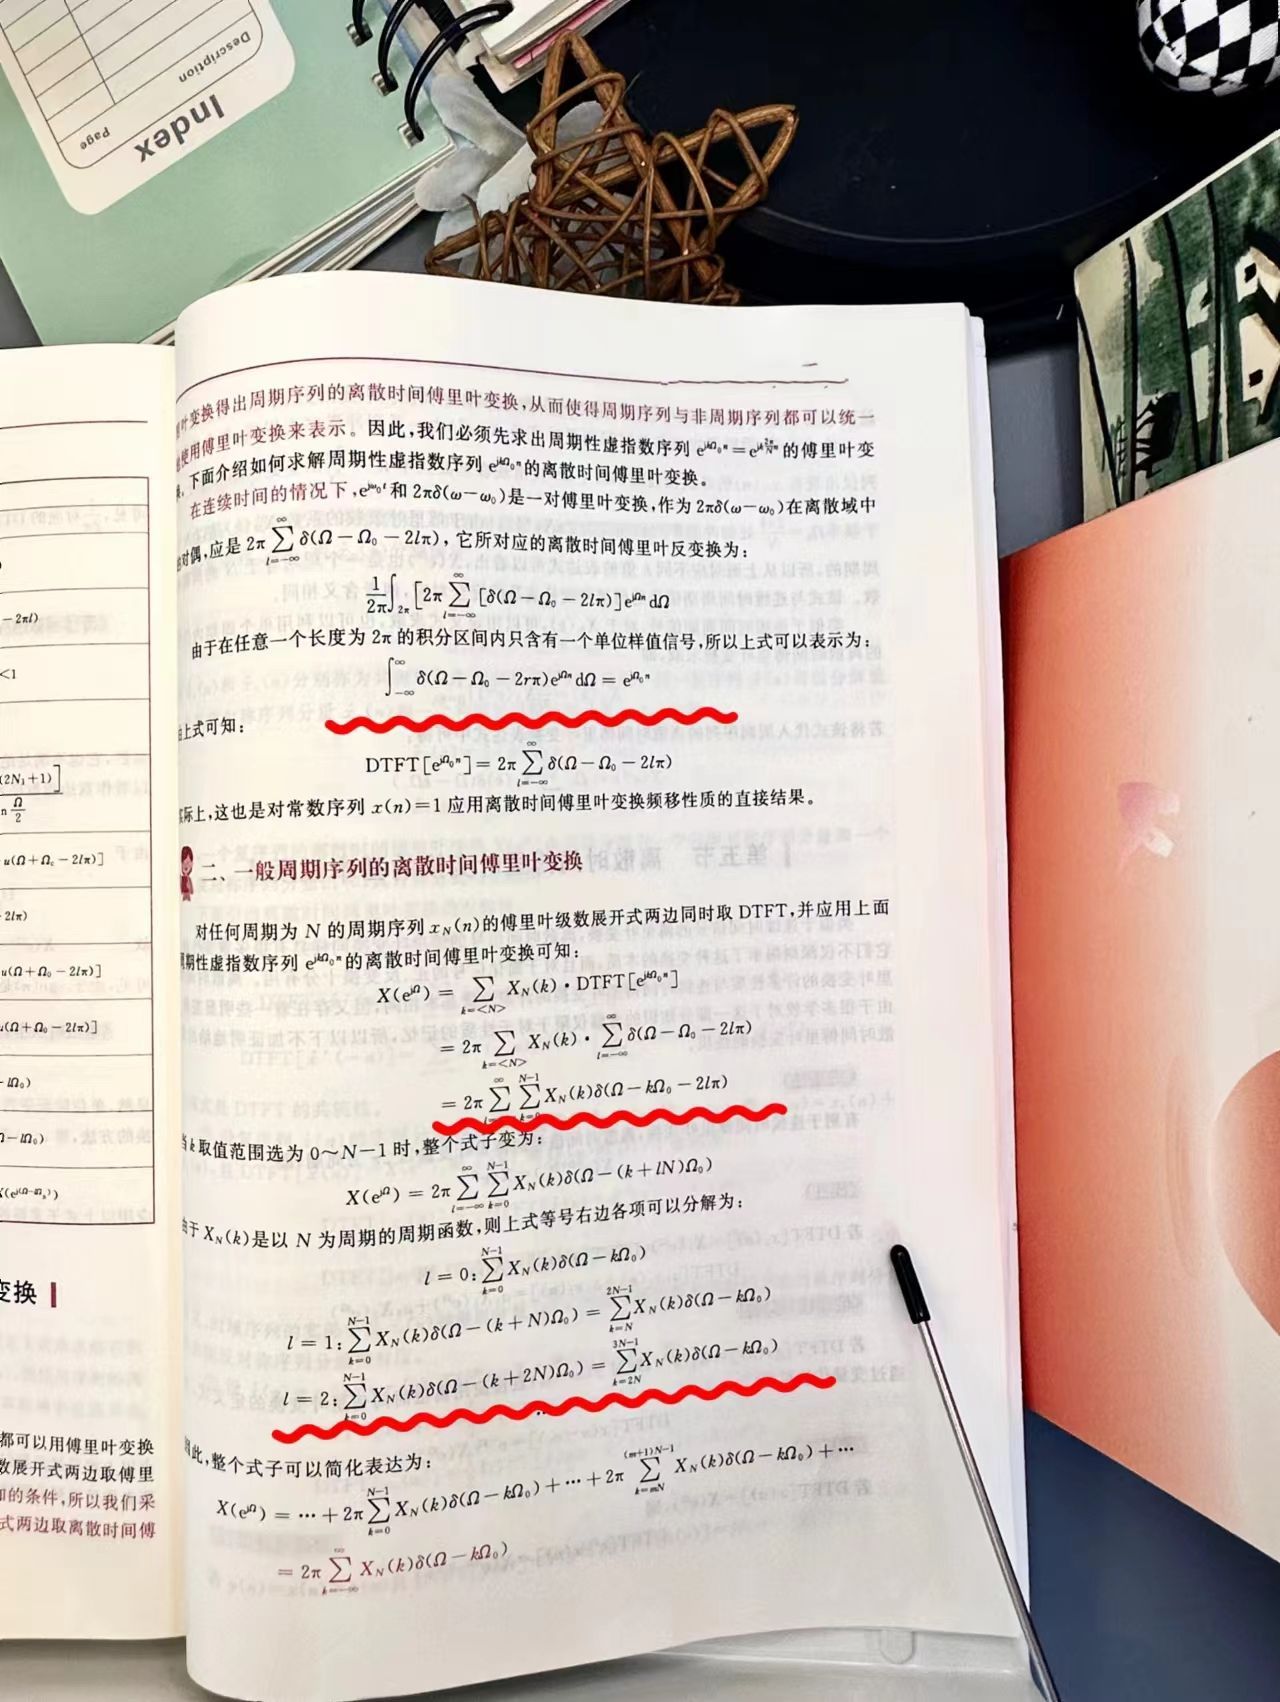 Description
Page
Index
叶变换得出周期序列的离散时间傅里叶变换,从而使得周期序列与非周期序列都可以统一
使用傅里叶变换来表示。因此,我们必须先求出周期性虚指数序列 e^{jkΩ₀n}=e^{jk\frac{2π}{N}n} 的傅里叶变
。下面介绍如何求解周期性虚指数序列 e^{jkΩ₀n}的离散时间傅里叶变换。
在连续时间的情况下,e^{jω₀t}和 2πδ(ω−ω₀)是一对傅里叶变换,作为 2πδ(ω−ω₀)在离散域中
对偶,应是 2π∑_{l=−∞}^{∞}δ(Ω−Ω₀−2lπ),它所对应的离散时间傅里叶反变换为:
\frac{1}{2π}∫_{2π}[2π∑_{l=−∞}^{∞}[δ(Ω−Ω₀−2lπ)]e^{jΩn}dΩ
由于在任意一个长度为 2π 的积分区间内只含有一个单位样值信号,所以上式可以表示为:
∫_{−∞}^{∞}δ(Ω−Ω₀−2rπ)e^{jΩn}dΩ=e^{jΩ₀n}
上式可知:
DTFT[e^{jΩ₀n}]=2π∑_{l=−∞}^{∞}δ(Ω−Ω₀−2lπ)
际上,这也是对常数序列 x(n)=1 应用离散时间傅里叶变换频移性质的直接结果。
二、一般周期序列的离散时间傅里叶变换
对任何周期为 N 的周期序列 x_N(n)的傅里叶级数展开式两边同时取 DTFT,并应用上面
期性虚指数序列 e^{jkΩ₀n}的离散时间傅里叶变换可知:
X(e^{jΩ})=∑_{k=<N>}X_N(k)·DTFT[e^{jkΩ₀n}]
=2π∑_{k=<N>}X_N(k)·∑_{l=−∞}^{∞}δ(Ω−Ω₀−2lπ)
=2π∑^{∞}∑_{k=0}^{N−1}X_N(k)δ(Ω−kΩ₀−2lπ)
当 k 取值范围选为 0～N−1 时,整个式子变为:
X(e^{jΩ})=2π∑_{l=−∞}^{∞}∑_{k=0}^{N−1}X_N(k)δ(Ω−(k+lN)Ω₀)
于 X_N(k)是以 N 为周期的周期函数,则上式等号右边各项可以分解为:
l=0:∑_{k=0}^{N−1}X_N(k)δ(Ω−kΩ₀)
l=1:∑_{k=0}^{N−1}X_N(k)δ(Ω−(k+N)Ω₀)=∑_{k=N}^{2N−1}X_N(k)δ(Ω−kΩ₀)
l=2:∑_{k=0}^{N−1}X_N(k)δ(Ω−(k+2N)Ω₀)=∑_{k=2N}^{3N−1}X_N(k)δ(Ω−kΩ₀)
此,整个式子可以简化表达为:
X(e^{jΩ})=⋯+2π∑_{k=0}^{N−1}X_N(k)δ(Ω−kΩ₀)+⋯+2π∑_{k=mN}^{(m+1)N−1}X_N(k)δ(Ω−kΩ₀)+⋯
=2π∑_{k=−∞}^{∞}X_N(k)δ(Ω−kΩ₀)
−2πl)
<1
(2N₁+1)]
Ω
2
u(Ω+Ω₀−2lπ)]
2lπ)
u(Ω+Ω₀−2lπ)]
(Ω+Ω₀−2lπ)]
Ω₀)
Ω−lΩ₀)
变换
都可以用傅里叶变换
数展开式两边取傅里
的条件,所以我们采
式两边取离散时间傅